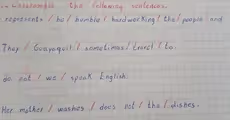 the following sentences.
represents / he / humble / hardworking / the / people and
They / Guayaquil / sometimes / travel / to.
do not / we / speak English.
Her mother / washes / does not / the / dishes.